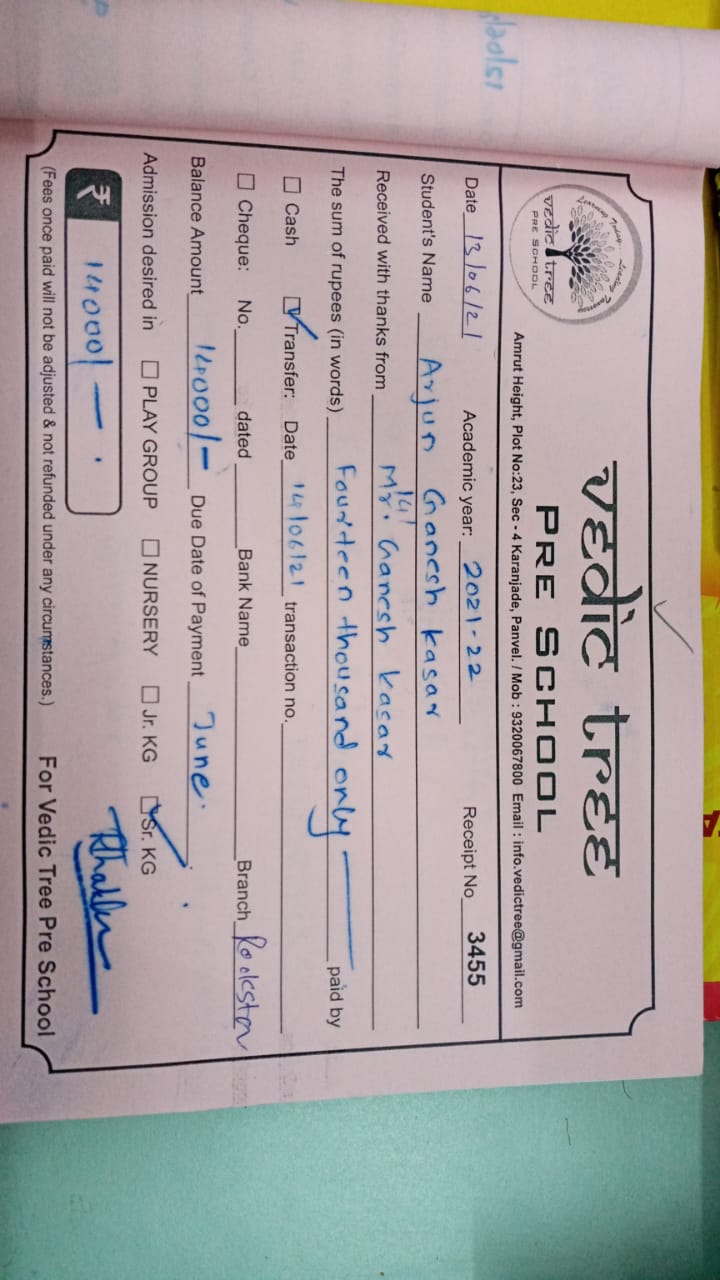 Learning Today... Leading Tomorrow
vedic tree
PRE SCHOOL
vedic tree
PRE SCHOOL
Amrut Height, Plot No:23, Sec - 4 Karanjade, Panvel. / Mob : 9320067800 Email : info.vedictree@gmail.com
Date 13/06/21 Academic year: 2021-22 Receipt No 3455
Student's Name Arjun Ganesh Kasar
Received with thanks from Mr. Ganesh Kasar
The sum of rupees (in words) Fourteen thousand only paid by
Cash Transfer: Date 14/06/21 transaction no.
Cheque: No. dated Bank Name Branch
Balance Amount 14000/- Due Date of Payment June.
Admission desired in PLAY GROUP NURSERY Jr. KG Sr. KG
₹ 14000/-.
(Fees once paid will not be adjusted & not refunded under any circumstances.) For Vedic Tree Pre School